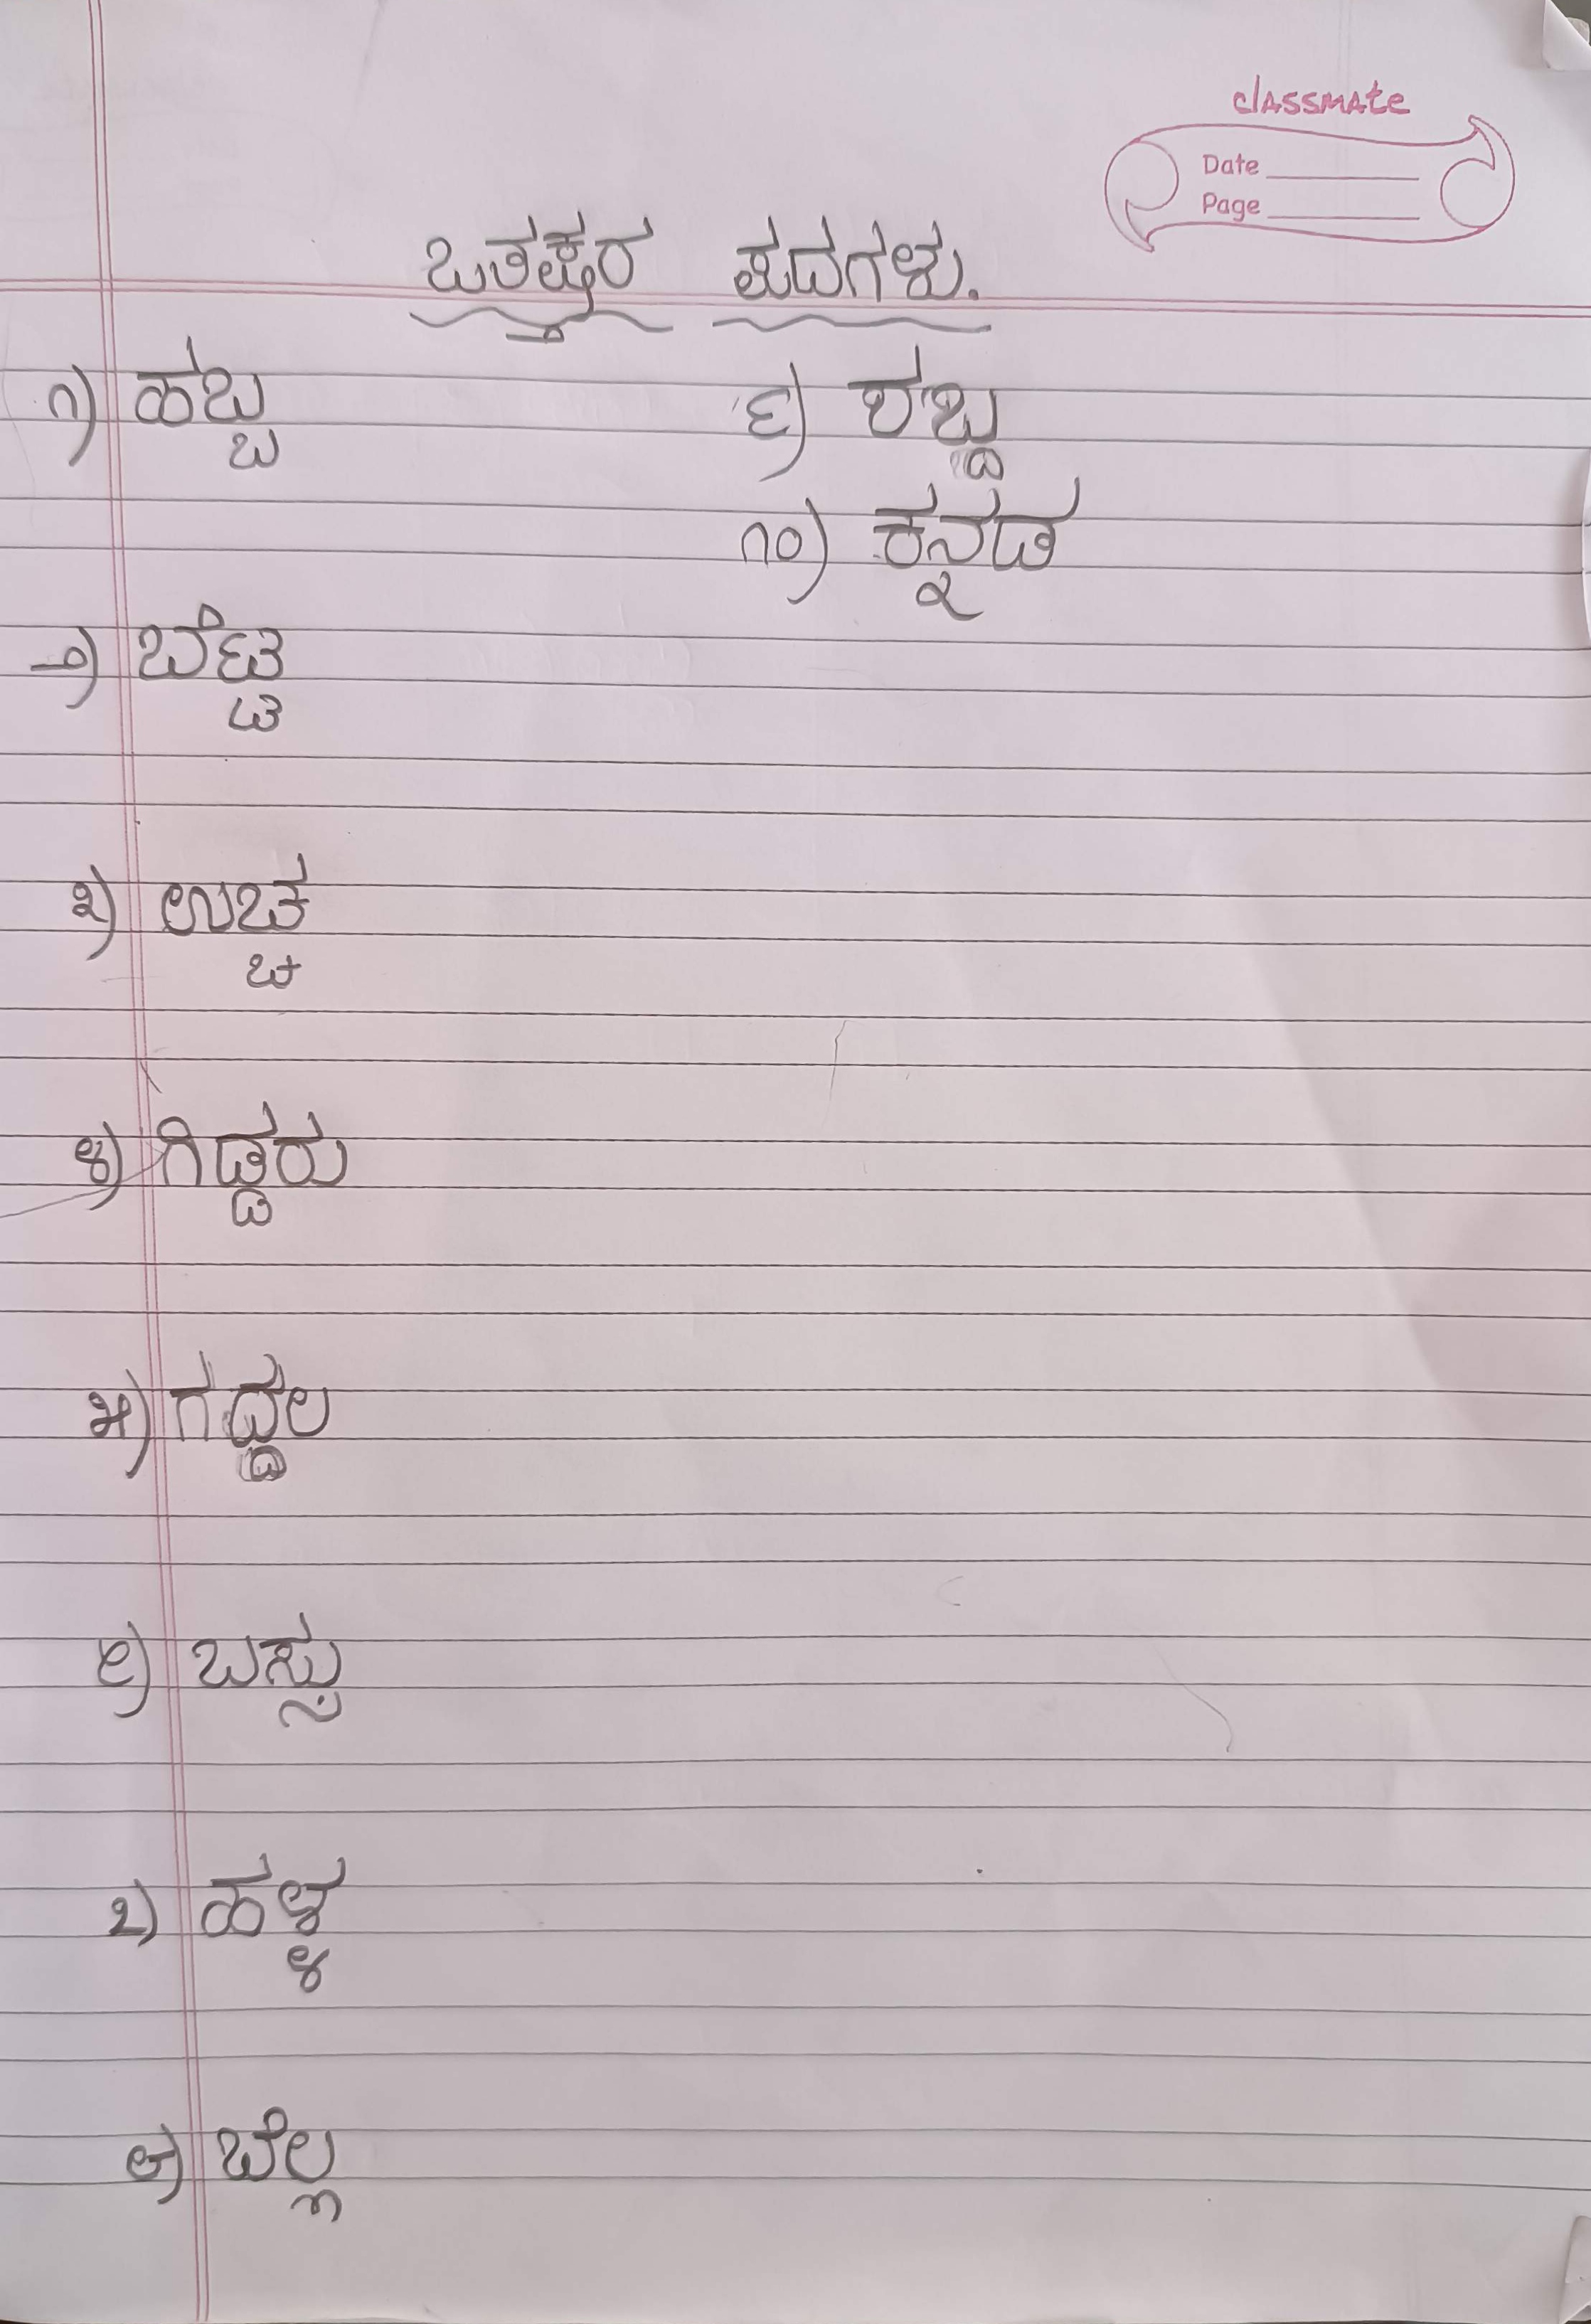 classmate
Date
Page
ಒತ್ತಕ್ಷರ ಪದಗಳು.
೧) ಹಬ್ಬ
೨) ಬೆಟ್ಟ
೩) ಉಚ್ಚ
೪) ಗಿಡ್ಡರು
೫) ಗದ್ದಲ
೬) ಬಸ್ಸು
೭) ಹಳ್ಳ
೮) ಬೆಲ್ಲ
೯) ಶಬ್ದ
೧೦) ಕನ್ನಡ